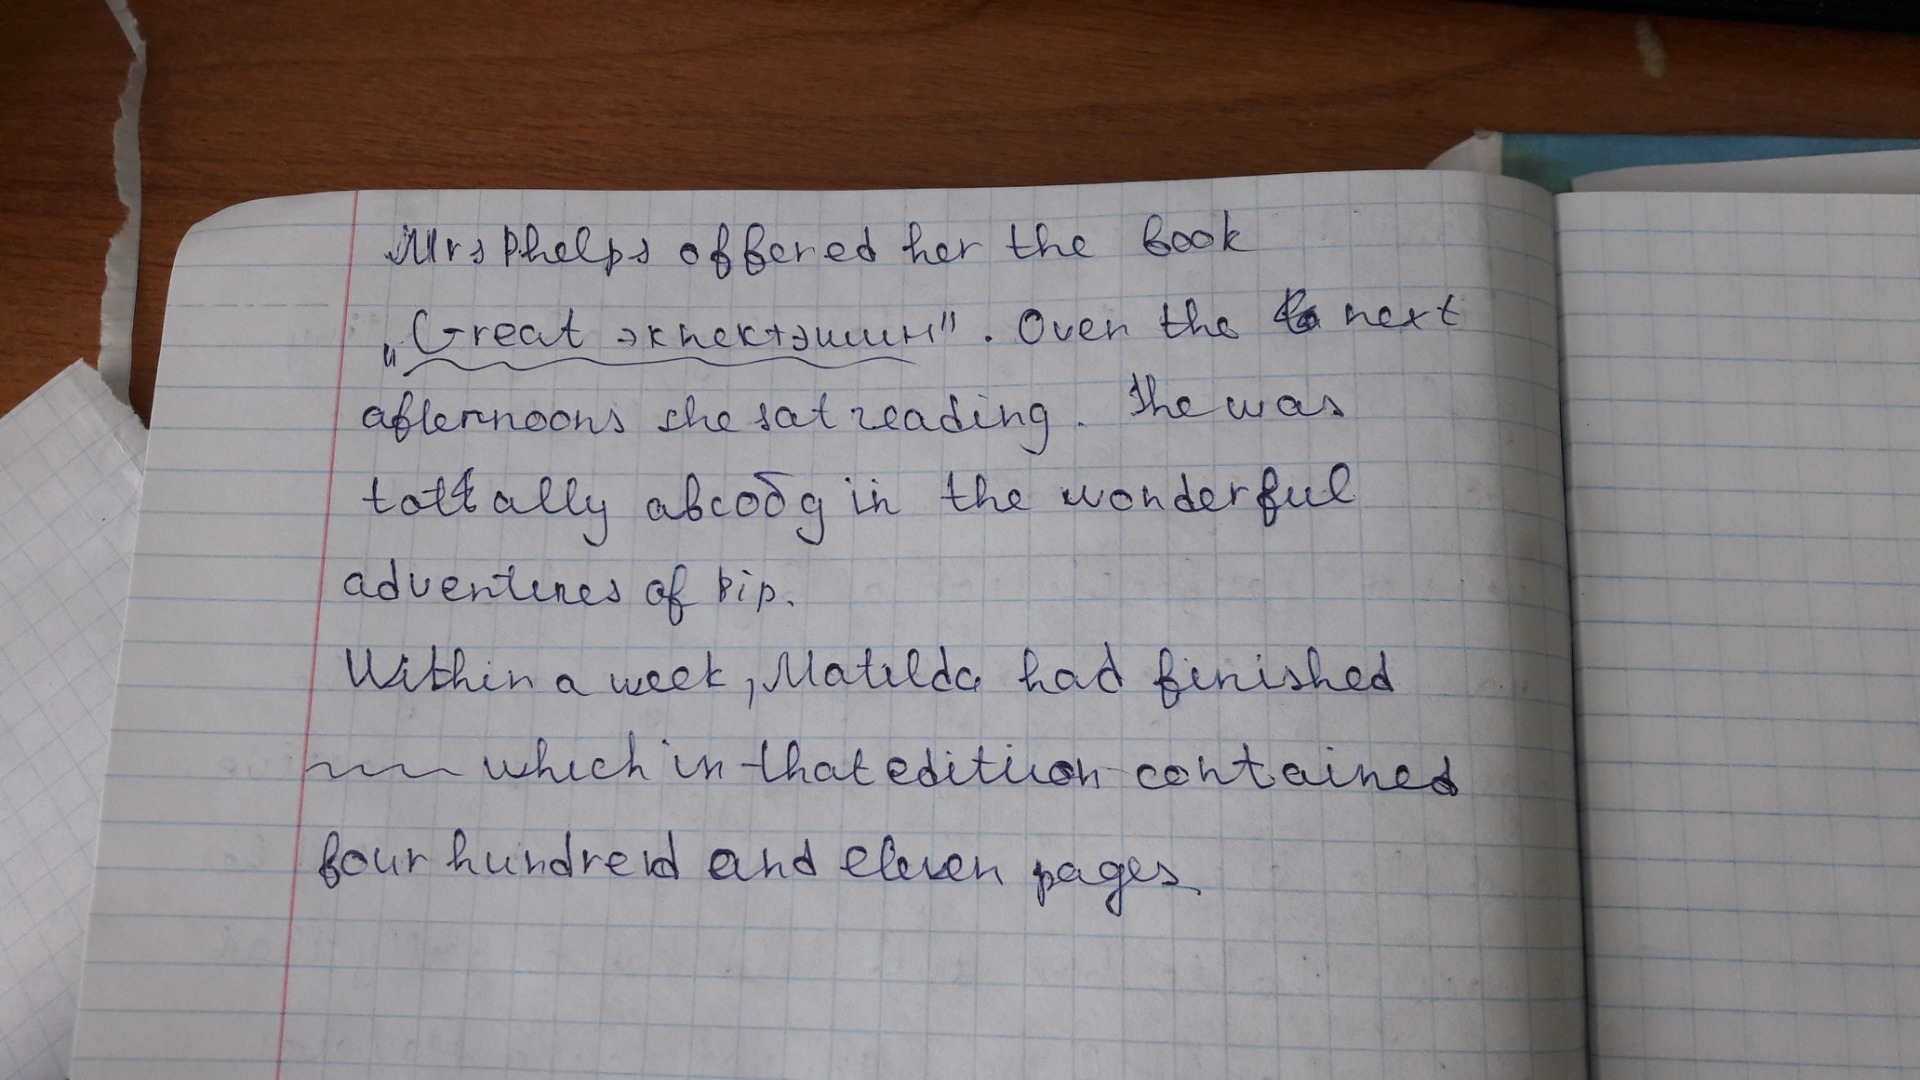 Mrs Phelps offered her the book
„Great экпектэшин". Over the next
afternoons she sat reading. She was
tottally абсобд in the wonderful
adventures of Pip.
Within a week, Matilda had finished
which in that edition contained
four hundred and eleven pages.